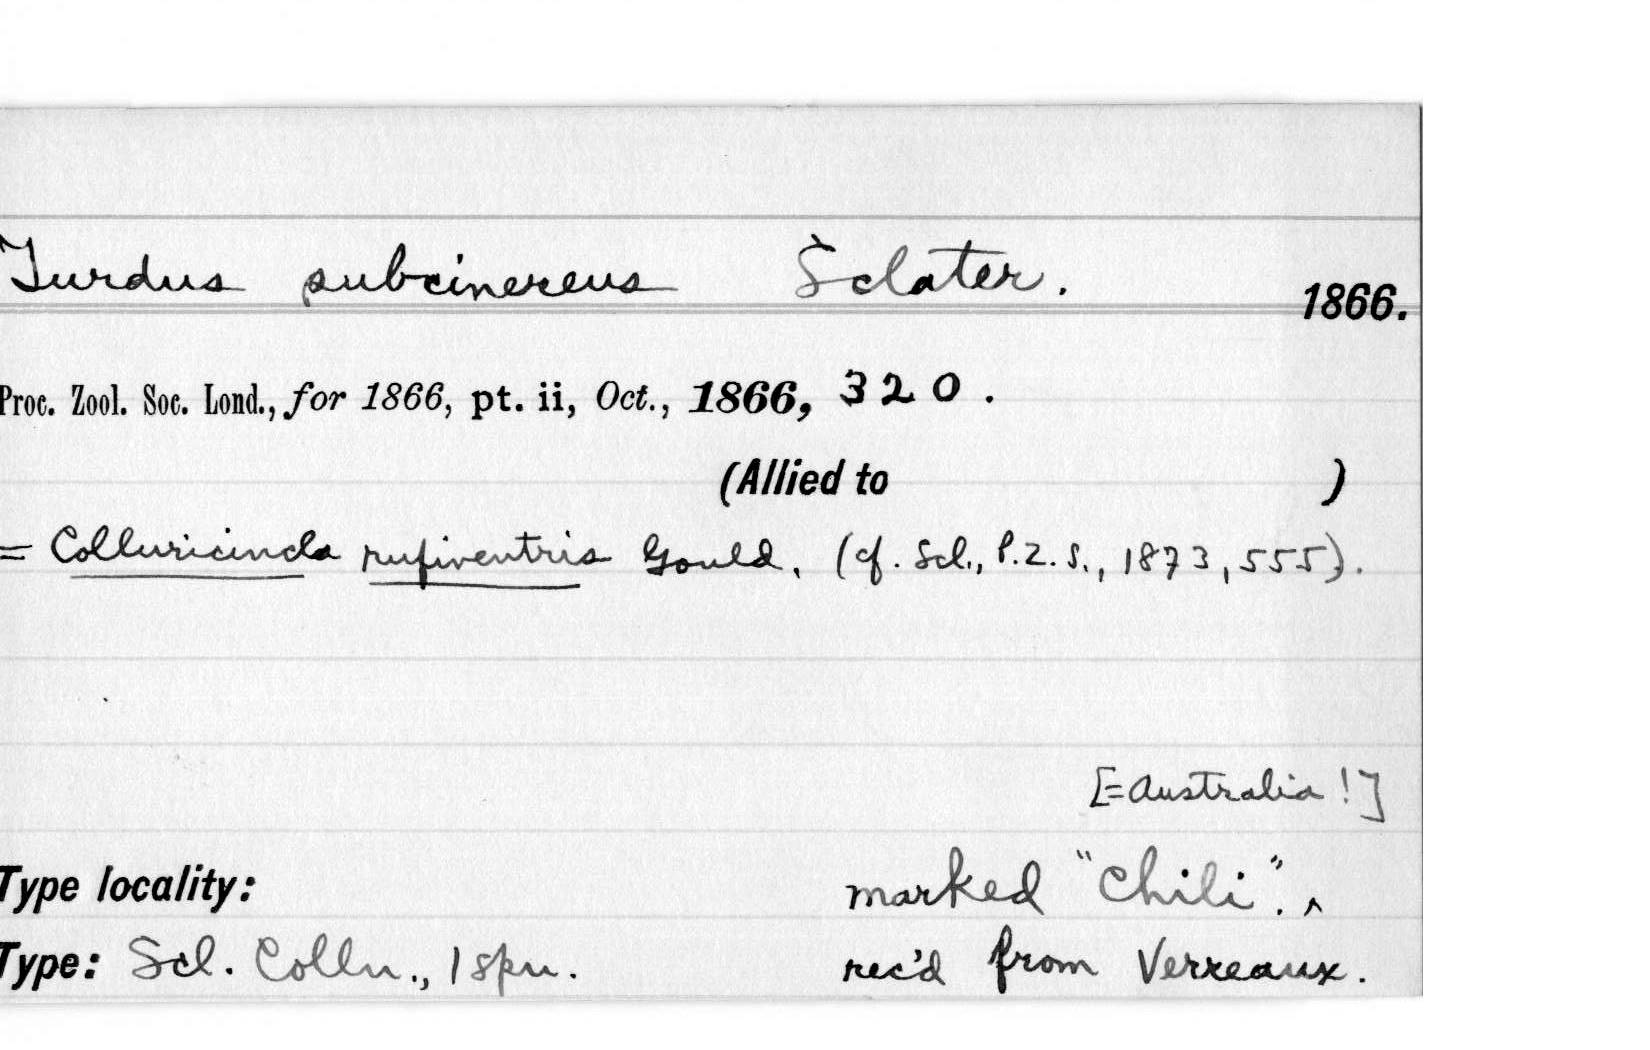 Turdus subcinereus Sclater.
1866.
Proc. Zool. Soc. Lond., for 1866, pt. ii, Oct., 1866, 320.
(Allied to )
= Colluricincla rufiventris Gould. (cf. Scl., P.Z.S., 1873, 555).
[=Australia!]
Type locality: marked "Chili". ^
Type: Scl. Colln., 1 spn. rec'd from Verreaux.